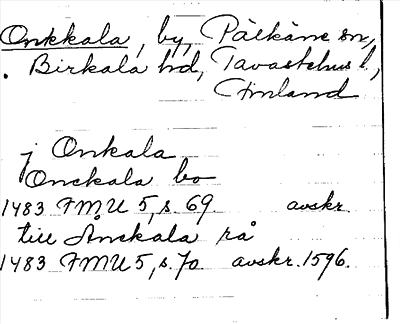 Onkkala, by, Pälkäne sn,
. Birkala hd, Tavastehus l.,
Finland
j Onkala
Onckala bo
1483 FMU 5, s. 69. avskr.
till Ånckala rå
1483 FMU 5, s. 70. avskr. 1596.